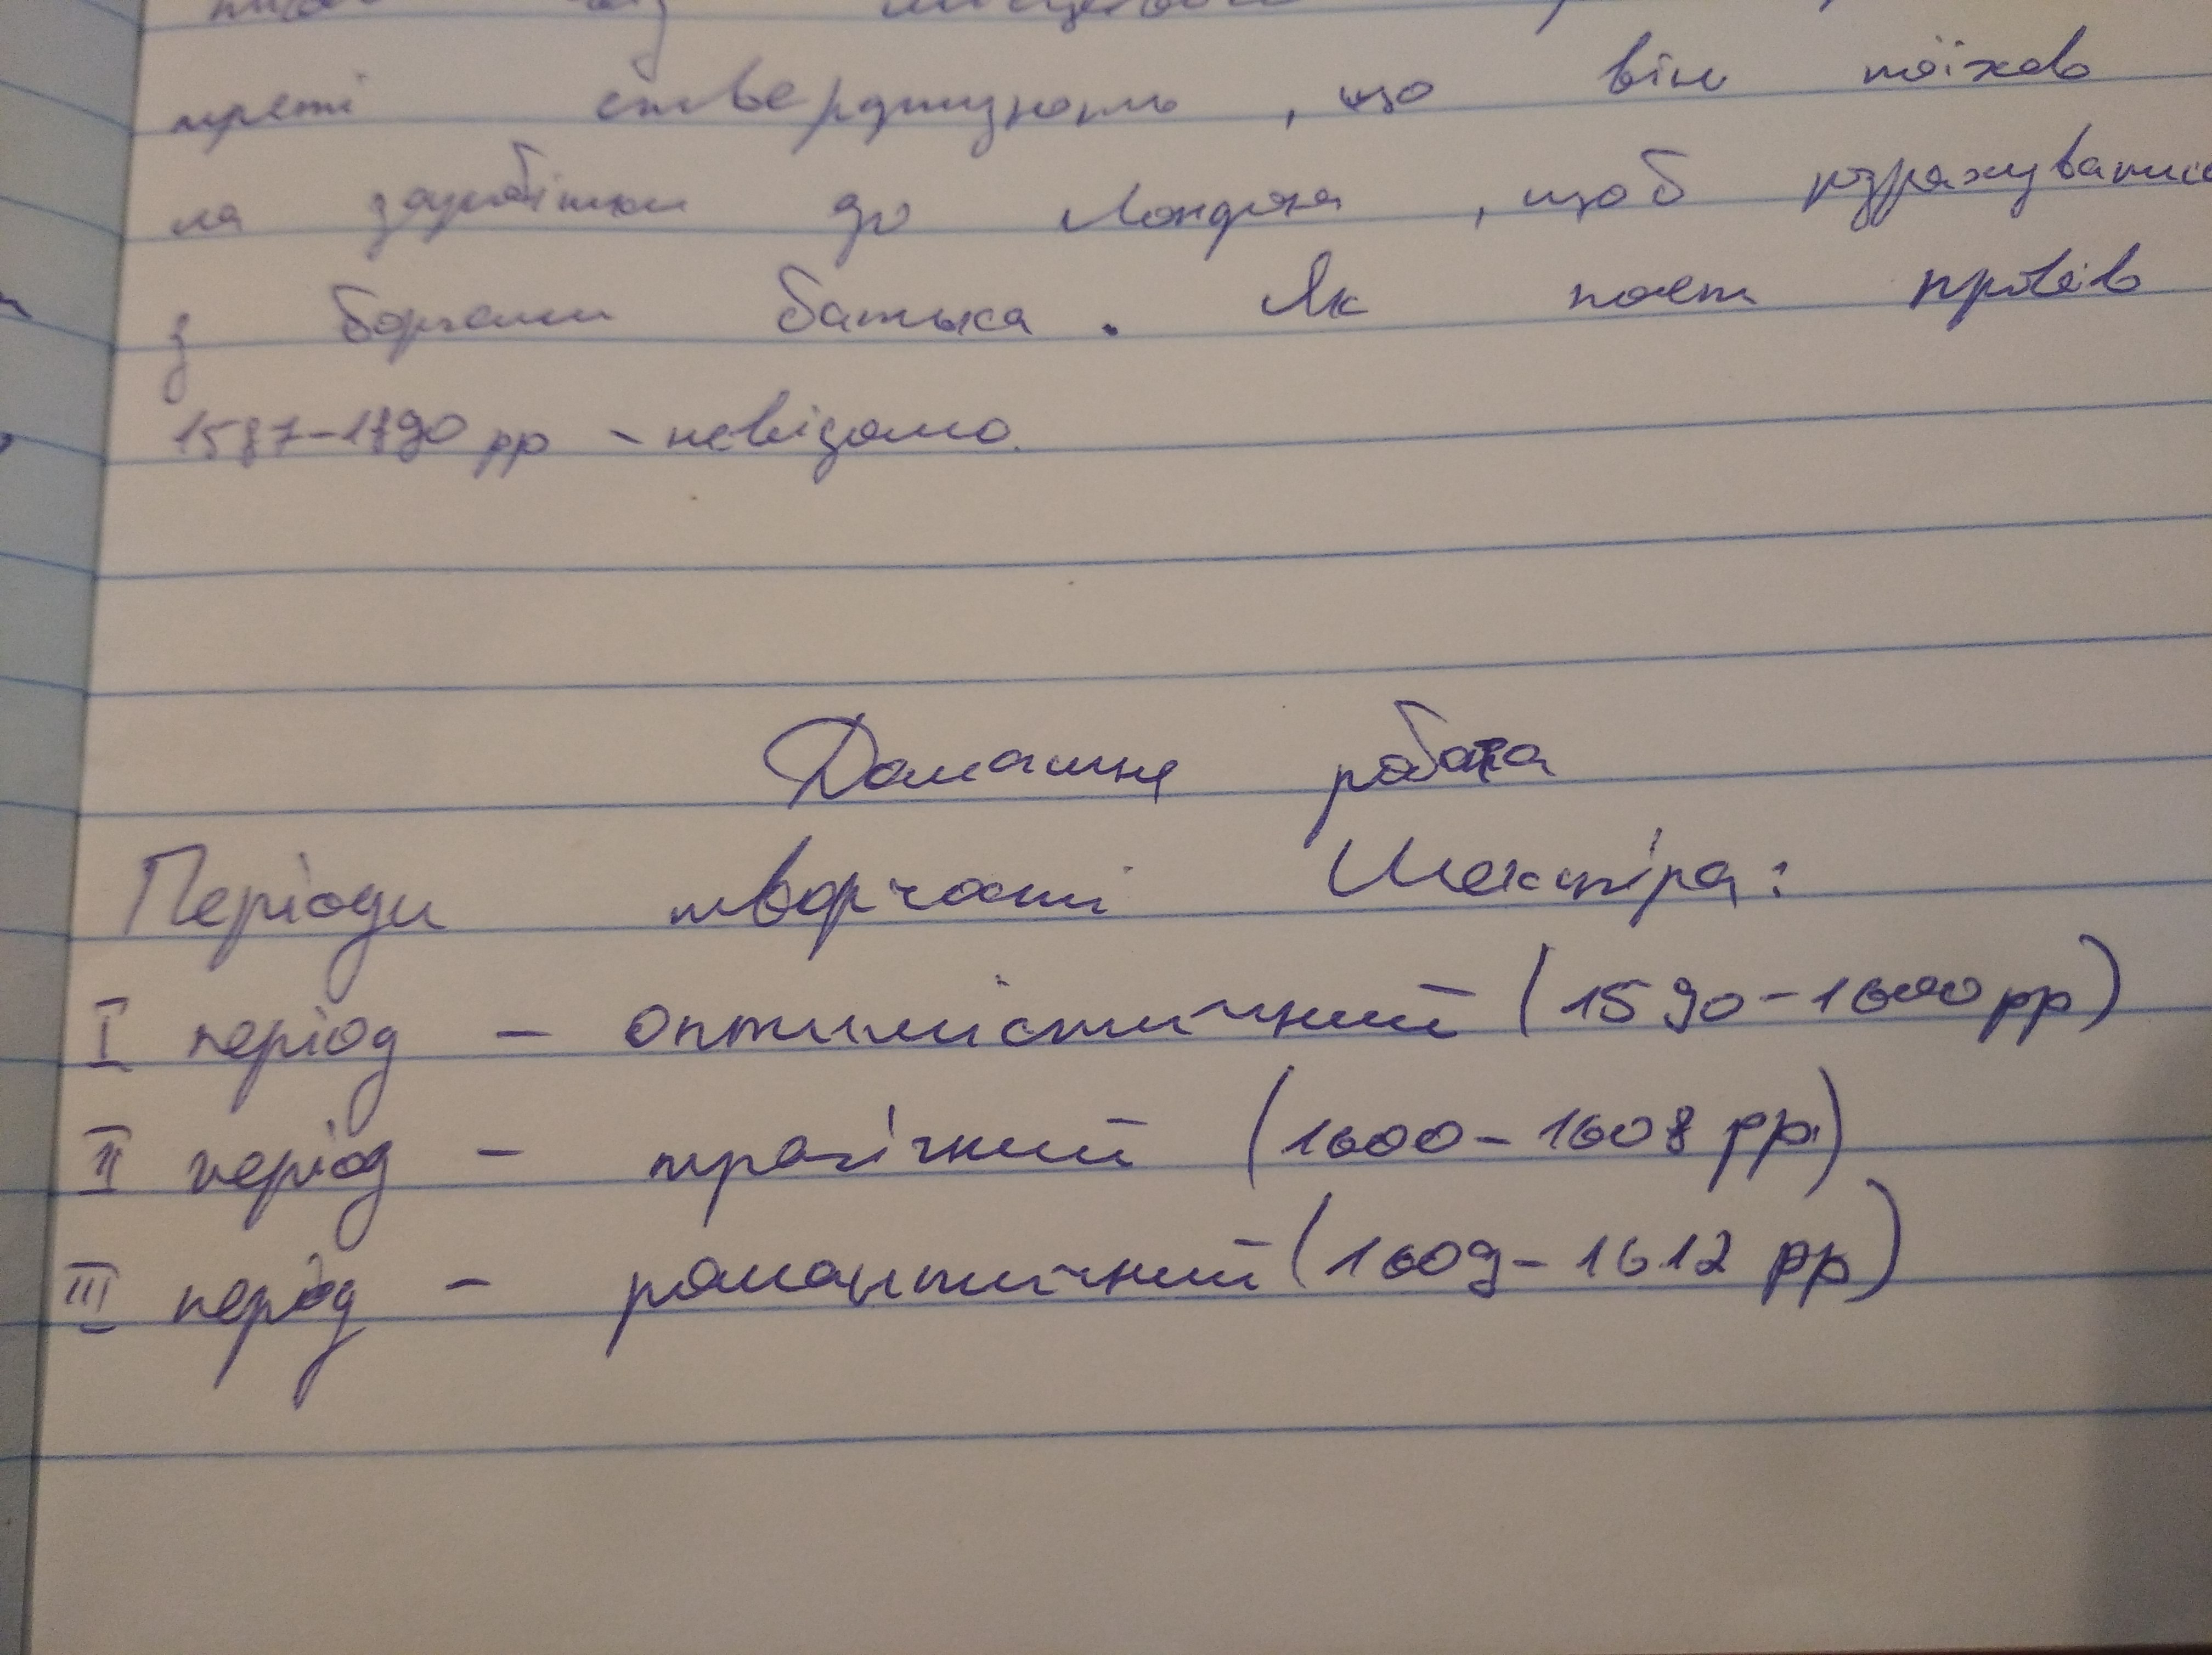 треті стверджують, що він поїхав
на заробітки до Лондона, щоб розрахуватись
з боргами батька. Як поет провів
1587-1590 рр - невідомо.
Домашня робота
Періоди творчості Шекспіра:
I період - оптимістичний (1590-1600 рр)
II період - трагічний (1600-1608 рр.)
III період - романтичний (1609-1612 рр)